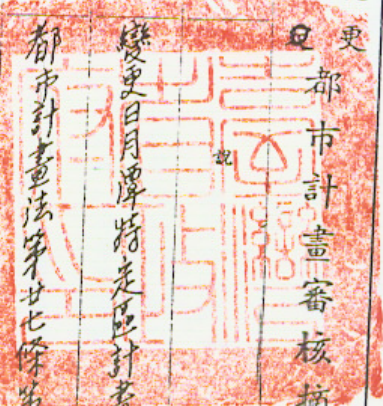 更
都市計畫審核摘
說
變更日月潭特定區計畫
都市計畫法第廿七條第